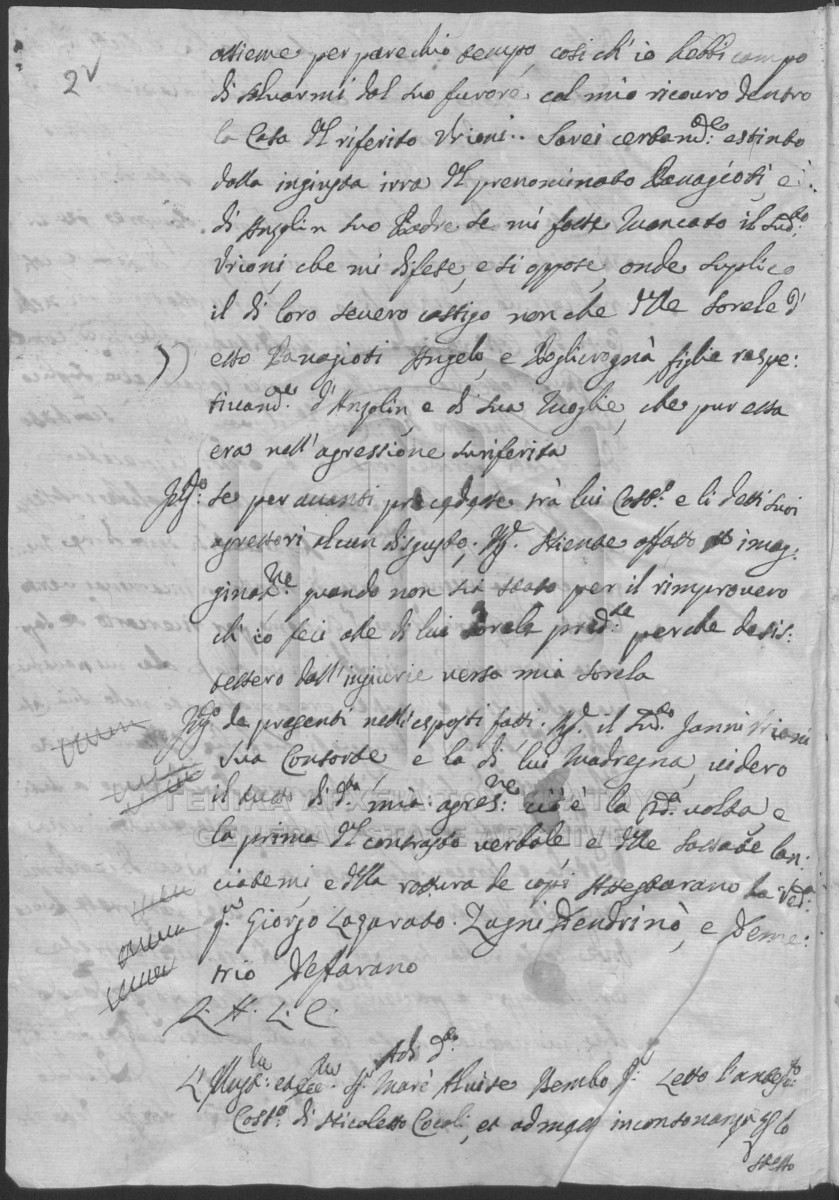 2
assieme per parechio tempo, cosi ch'io hebbi campo
di salvarmi dal suo furore col mio ricouro dentro
la Casa del riferito Vrioni.. Sarei certam.te estinto
dalla ingiusta irra del prenominato Panagioti, e
di Anzolin suo Padre se mi fosse mancato il sud.to
Vrioni, che mi difese, e si oppose, onde suplico
il di loro severo castigo non che delle sorele d'
esso Panagioti Angelo, e figlie respe:
tiuam.te d'Anzolin, e di sua Moglie, che pur essa
era nell'agressione suriferita
Int.to se per auanti precedesse trà lui Cost.o e li detti suoi
agressori alcun disgusto. R. Niente affatto imag:
ginat.ne quando non sia stato per il rimprouero
ch'io feci alle di lui sorele pred.te perche desis:
tessero dall'ingiurie verso mia sorela
Int.to da presenti nell'esposti fatti. R. il sud.to Janni Vrioni
sua Consorte, e la di lui Madregna, uidero
il tutto di d.ta mia agres.ne cioè la p.da volta, e
la prima del contrasto verbale e delle sassate lan:
ciatemi e della rottura de copi la Ved.a
q.m Giorgo Lazarato. Zagni Dendrinò, e Deme:
trio Destarano
L. H. L. C.
Adi d.to
L'Illust.mo et Ecc.mo S.r Marc' Aluise Bembo Letto l'antes.to
Cost.o di Nicoletto Cocoli, et admess in consonanza dello
stesso
ΓΕΝΙΚΑ ΑΡΧΕΙΑ ΤΟΥ ΚΡΑΤΟΥΣ
GENERAL STATE ARCHIVES